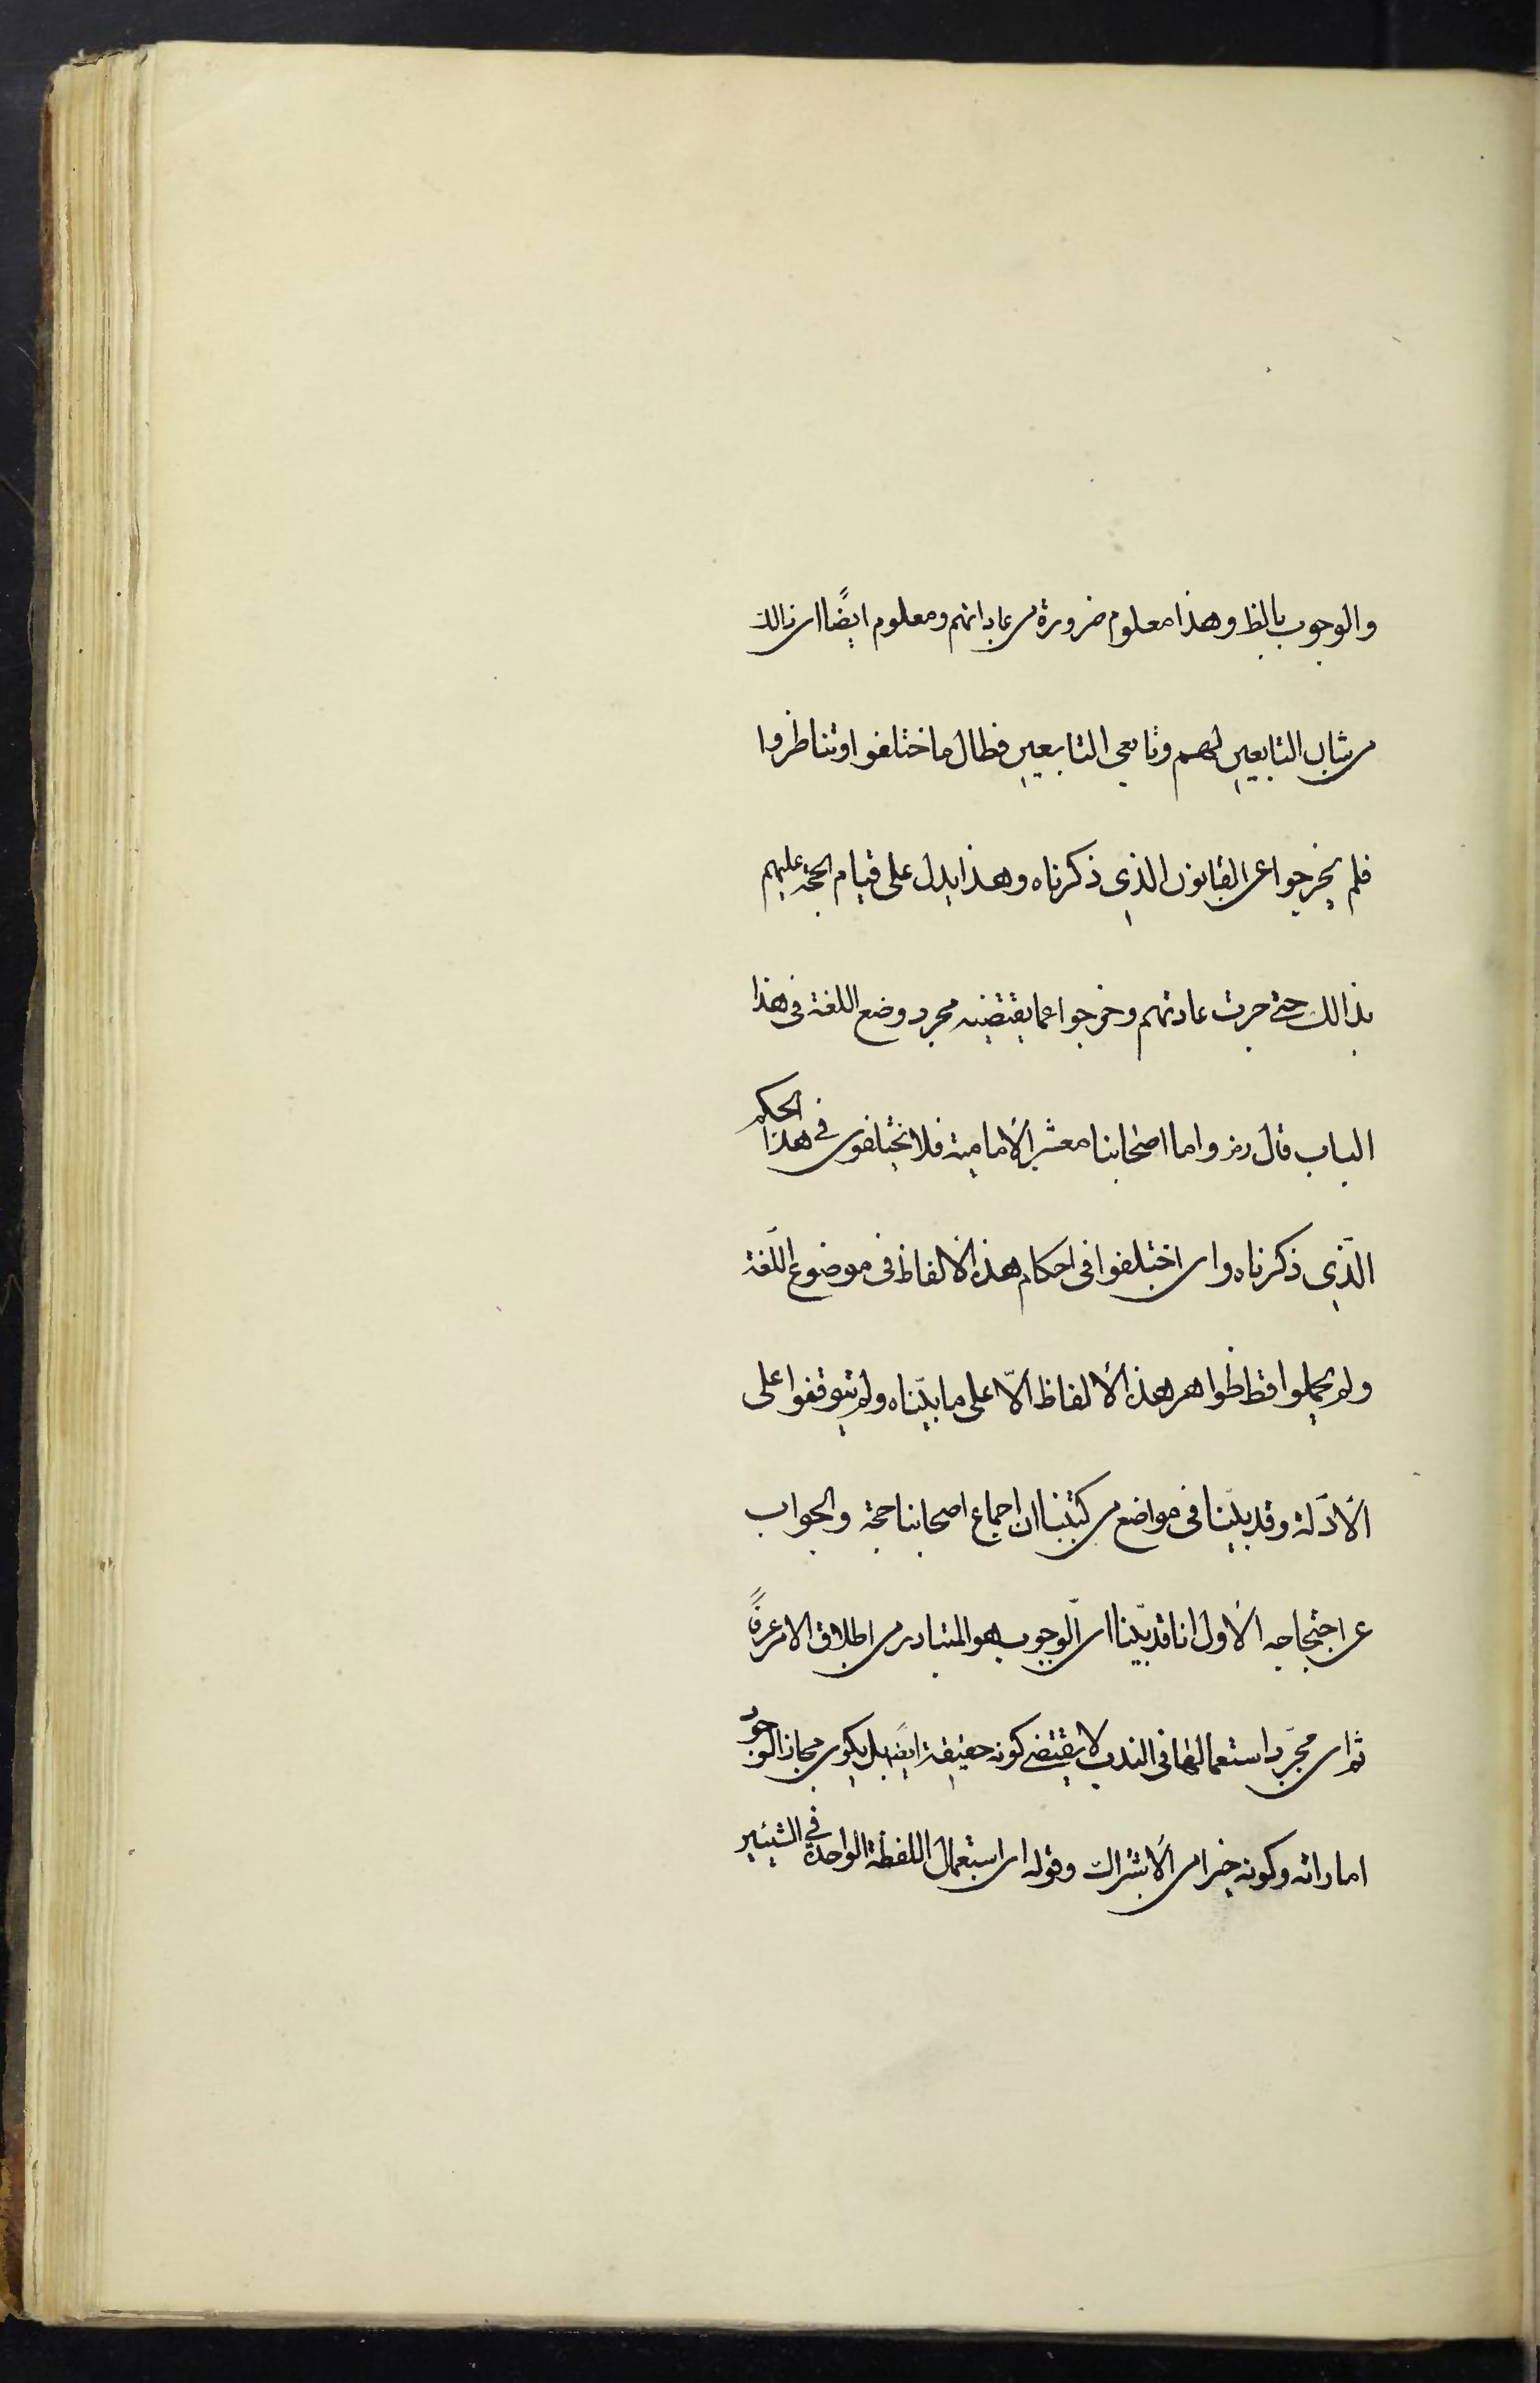 والوجوب بالظ وهذا معلوم ضرورة من عاداتهم ومعلوم ايضًا ان ذالك
من شان التابعين لهم وتابعى التابعين فطال ما اختلفوا وتناظروا
فلم يخرجوا عن القانون الذي ذكرناه وهذا يدل على قيام الحجة عليهم
بذالك حتى جرت عادتهم وخرجوا عما يقتضيه مجرد وضع اللغة فى هذا
الباب قال رض واما اصحابنا معشر الأمامية فلا يختلفون في هذا الحكم
الّذي ذكرناه وان اختلفوا فى احكام هذه الألفاظ فى موضوع اللّغة
ولم يحملوا قط ظواهر هذه الألفاظ الّا على ما بيّناه ولم يتوقفوا على
الأدّلة وقد بيّنا فى مواضع من كتبنا ان اجماع اصحابنا حجة والجواب
عن احتجاجه الأول انا قد بيّنا ان الّوجوب هو المتبادر من اطلاق الامر عرفًا
ثم ان مجّرد استعمالها فى الندب لا يقتضى كونه حقيقة ايضًا بل يكون مجازا لوجود
اماراته وكونه خيرا من الأشتراك وقوله ان استعمال اللفظة الواحدة في الشيئين